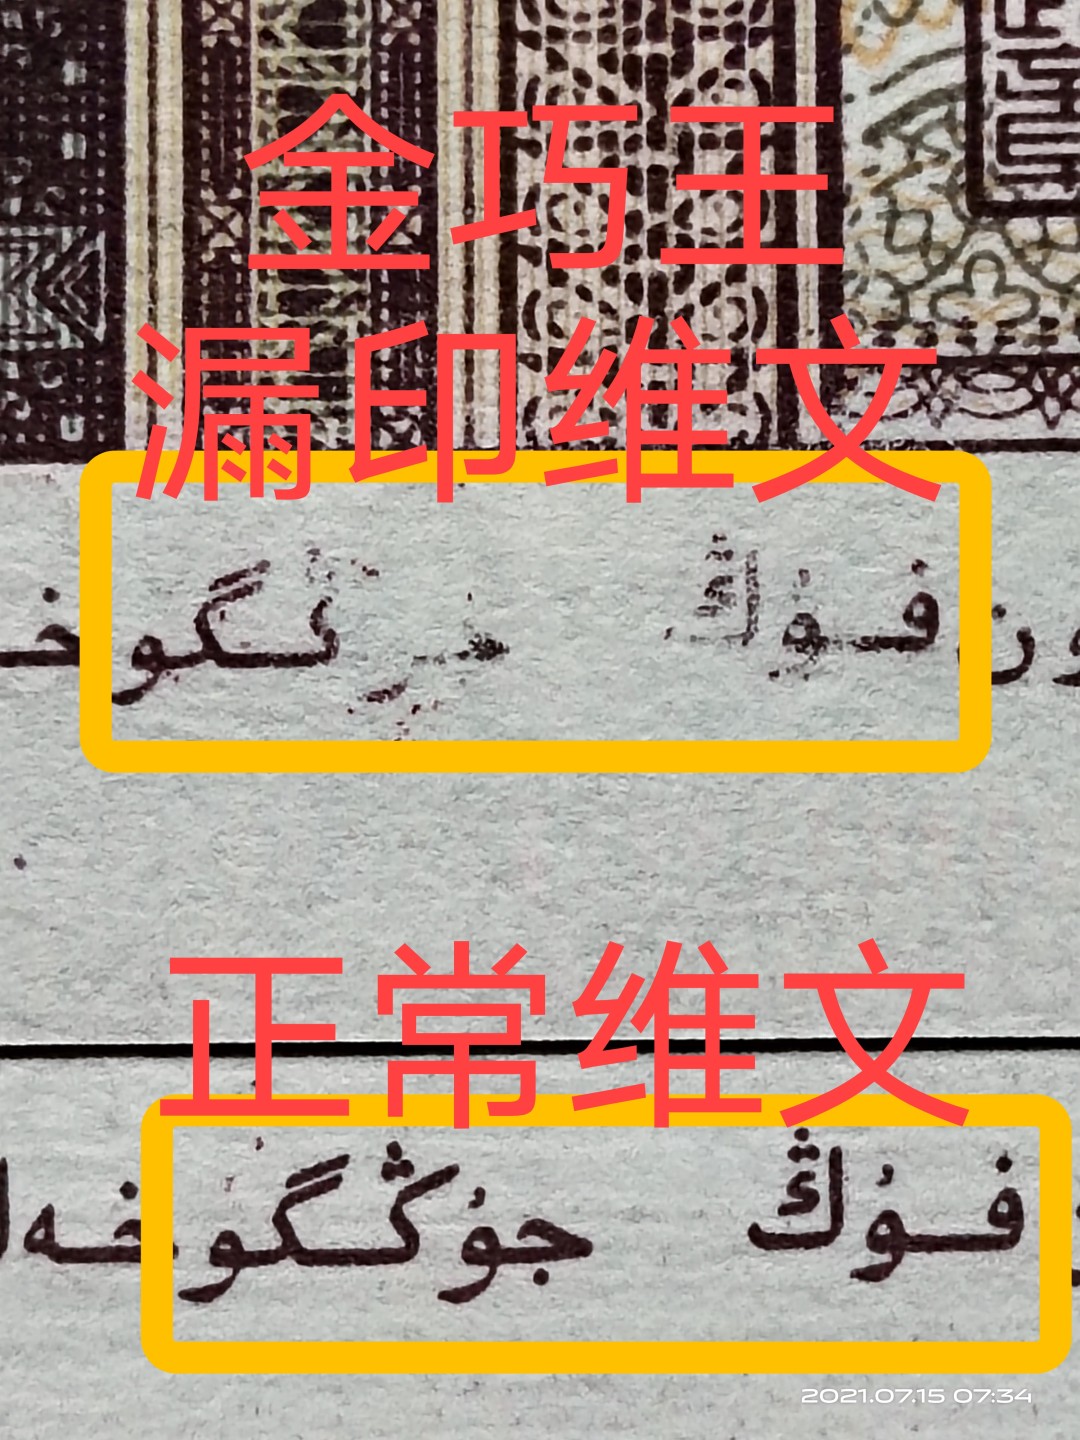 金巧王
漏印维文
فۇڭ
گو
正常维文
فۇڭ جۇڭگو خەل
2021.07.15 07:34